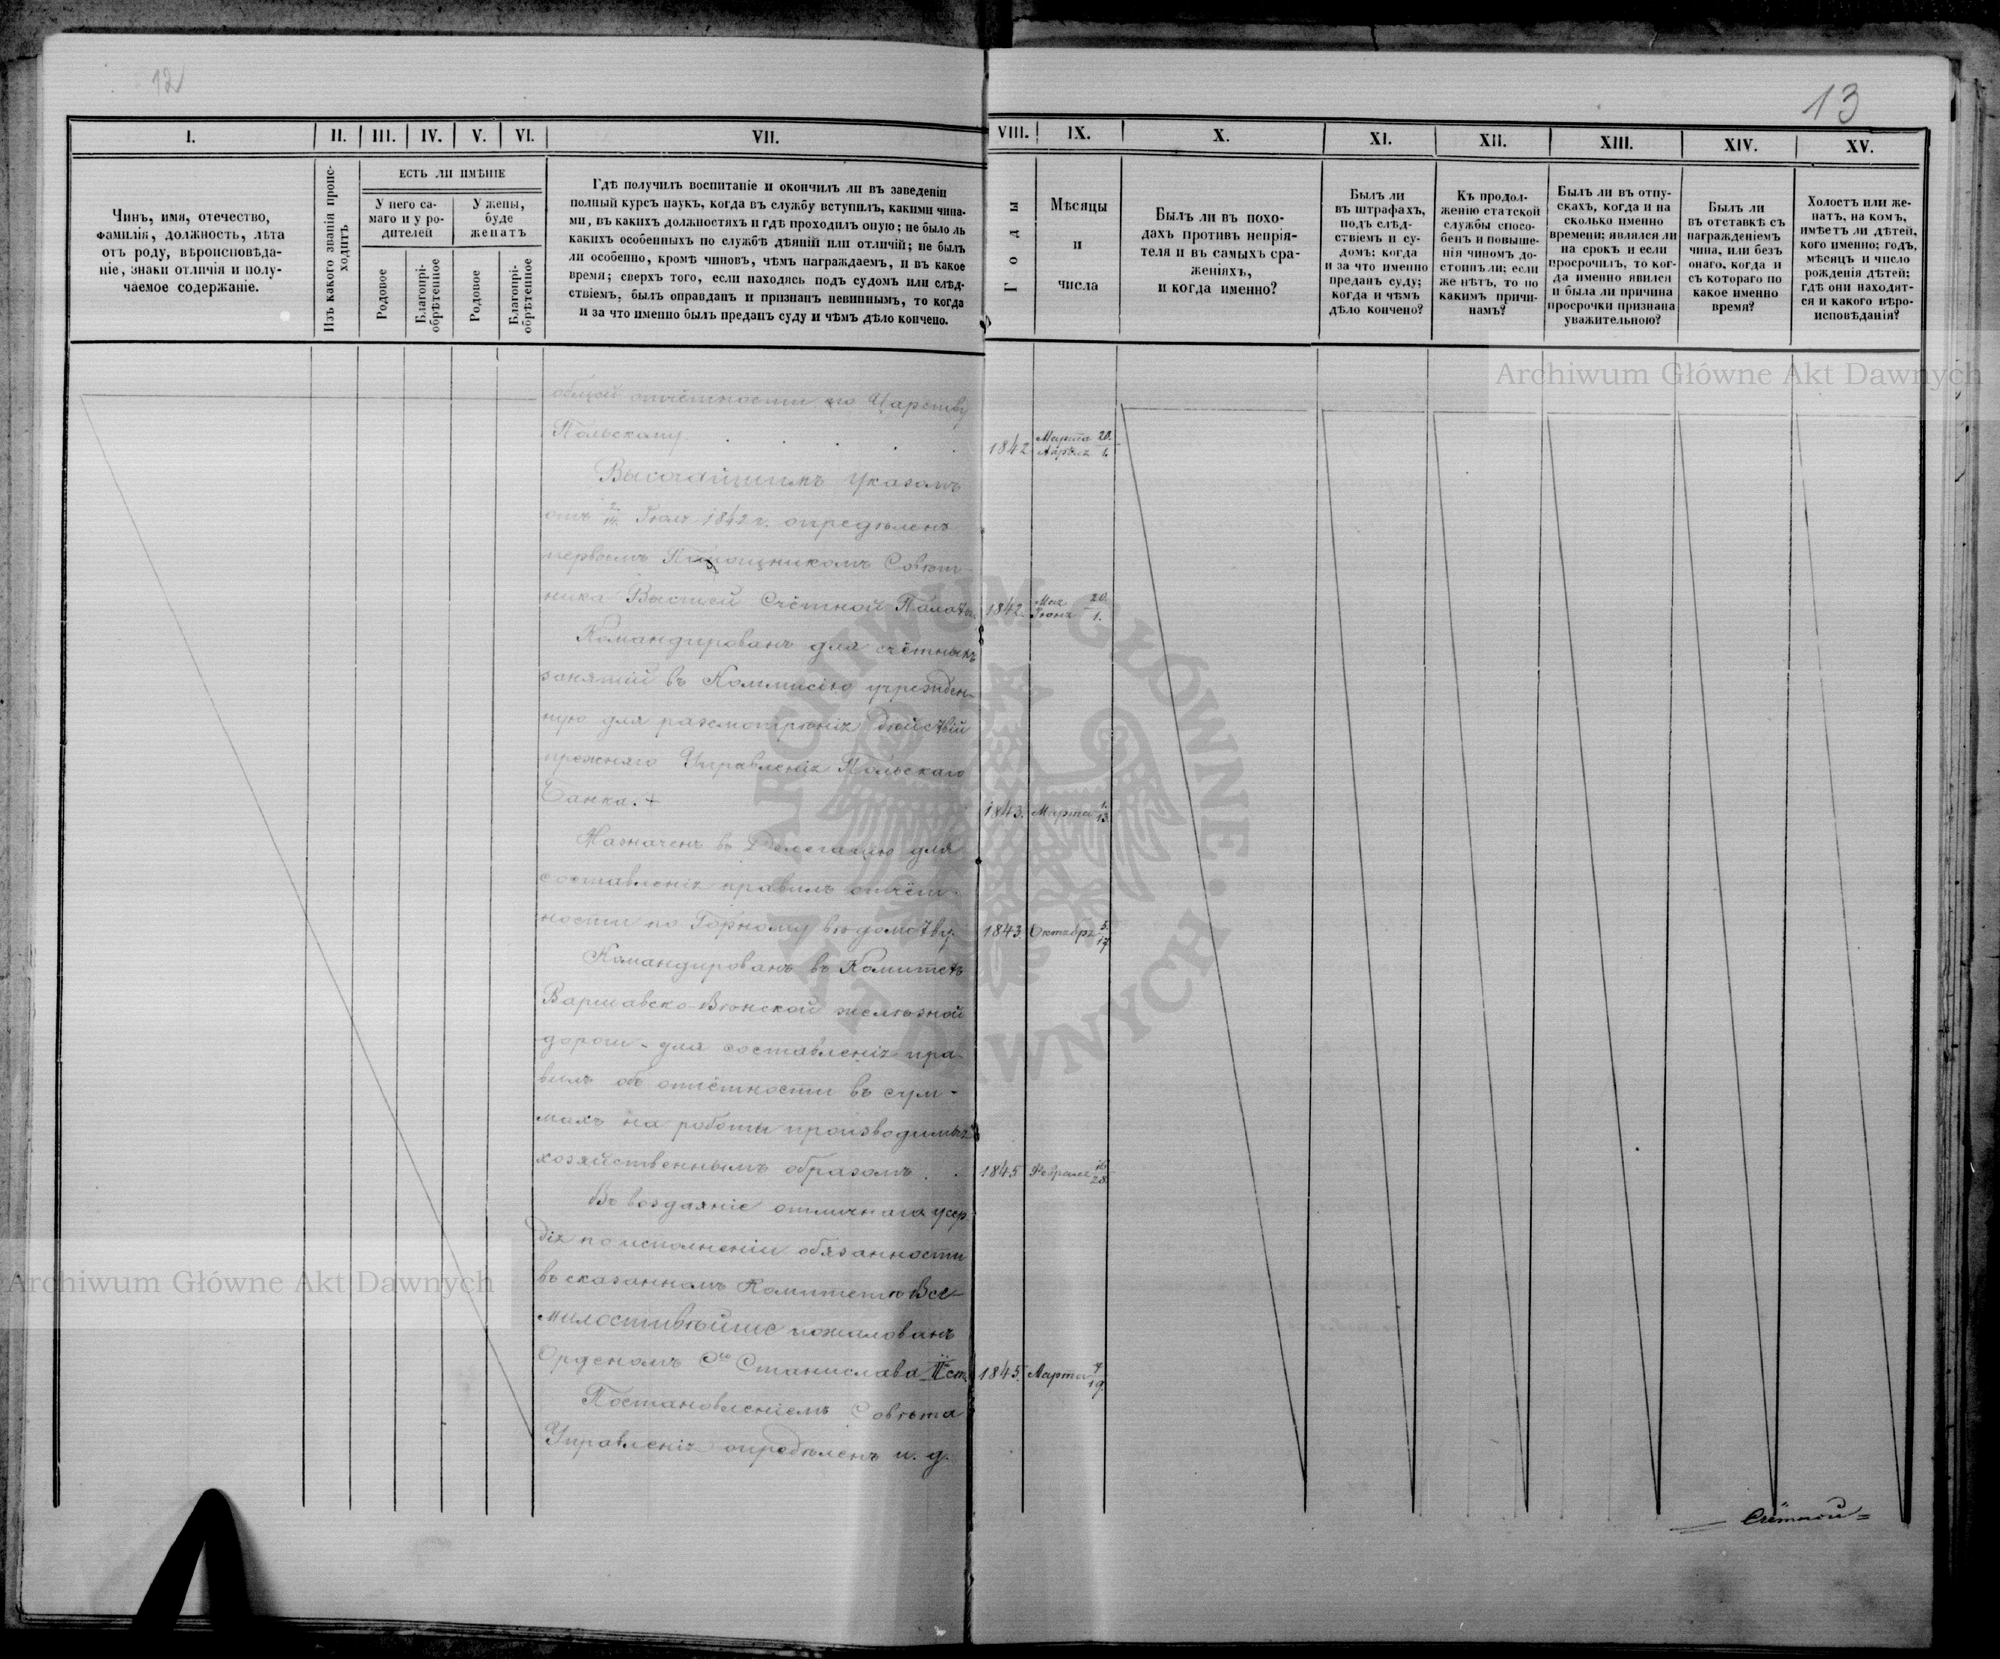 12
13
I.
II.
III.
IV.
V.
VI.
VII.
VIII.
IX.
X.
XI.
XII.
XIII.
XIV.
XV.
Чинъ, имя, отечество,
фамилія, должность, лѣта
отъ роду, вѣроисповѣда-
ніе, знаки отличія и полу-
чаемое содержаніе.
Изъ какого званія проис-
ходитъ
ЕСТЬ ЛИ ИМѢНІЕ
У него са-
маго и у ро-
дителей
У жены,
буде
женатъ
Родовое
Благопрі-
обрѣтенное
Родовое
Благопрі-
обрѣтенное
Гдѣ получилъ воспитаніе и окончилъ ли въ заведеніи
полный курсъ наукъ, когда въ службу вступилъ, какими чина-
ми, въ какихъ должностяхъ и гдѣ проходилъ оную; не было ль
какихъ особенныхъ по службѣ дѣяній или отличій; не былъ
ли особенно, кромѣ чиновъ, чѣмъ награждаемъ, и въ какое
время; сверхъ того, если находясь подъ судомъ или слѣд-
ствіемъ, былъ оправданъ и признанъ невиннымъ, то когда
и за что именно былъ преданъ суду и чѣмъ дѣло кончено.
Годы
Мѣсяцы
и
числа
Былъ ли въ похо-
дахъ противъ непрія-
теля и въ самыхъ сра-
женіяхъ,
и когда именно?
Былъ ли
въ штрафахъ,
подъ слѣд-
ствіемъ и су-
домъ; когда
и за что именно
преданъ суду;
когда и чѣмъ
дѣло кончено?
Къ продол-
женію статской
службы спосо-
бенъ и повыше-
нія чиномъ до-
стоинъ ли; если
же нѣтъ, то по
какимъ причи-
намъ?
Былъ ли въ отпу-
скахъ, когда и на
сколько именно
времени; являлся ли
на срокъ и если
просрочилъ, то ког-
да именно явился
и была ли причина
просрочки признана
уважительною?
Былъ ли
въ отставкѣ съ
награжденіемъ
чина, или безъ
онаго, когда и
съ котораго по
какое именно
время?
Холостъ или же-
натъ, на комъ,
имѣетъ ли дѣтей,
кого именно; годъ,
мѣсяцъ и число
рожденія дѣтей;
гдѣ они находят-
ся и какого вѣро-
исповѣданія?
общей отчётности по Царству
Польскому. 1842 Марта 20. Апрѣля 1.
Высочайшимъ Указомъ
отъ 2/14. Іюля 1842 г. опредѣленъ
первымъ Помощникомъ Совѣт-
ника Высшей Счётной Палаты 1842. Мая 20. Іюня 1.
Командированъ для счётныхъ
занятій въ Коммисію учрежден-
ную для разсмотрѣнія дѣйствій
прежняго Управленія Польскаго
Банка. 1843. Марта 1. 13.
Назначенъ въ Делегацію для
составленія правилъ отчёт-
ности по Горному вѣдомству. 1843. Октября 5. 17.
Командированъ въ Комитетъ
Варшавско-Вѣнской желѣзной
дороги - для составленія пра-
вилъ объ отчётности въ сум-
махъ на работы производимыя
хозяйственнымъ образомъ. 1845 Февраля 16 28.
Въ воздаяніе отличнаго усер-
дія по исполненіи обязанности
въ сказанномъ Комитетѣ Все-
милостивѣйше пожалованъ
Орденомъ Св. Станислава II ст. 1845. Марта 7 19.
Постановленіемъ Совѣта
Управленія опредѣленъ и. д.
Счётной
Archiwum Główne Akt Dawnych
Archiwum Główne Akt Dawnych
ARCHIWUM GŁÓWNE AKT DAWNYCH